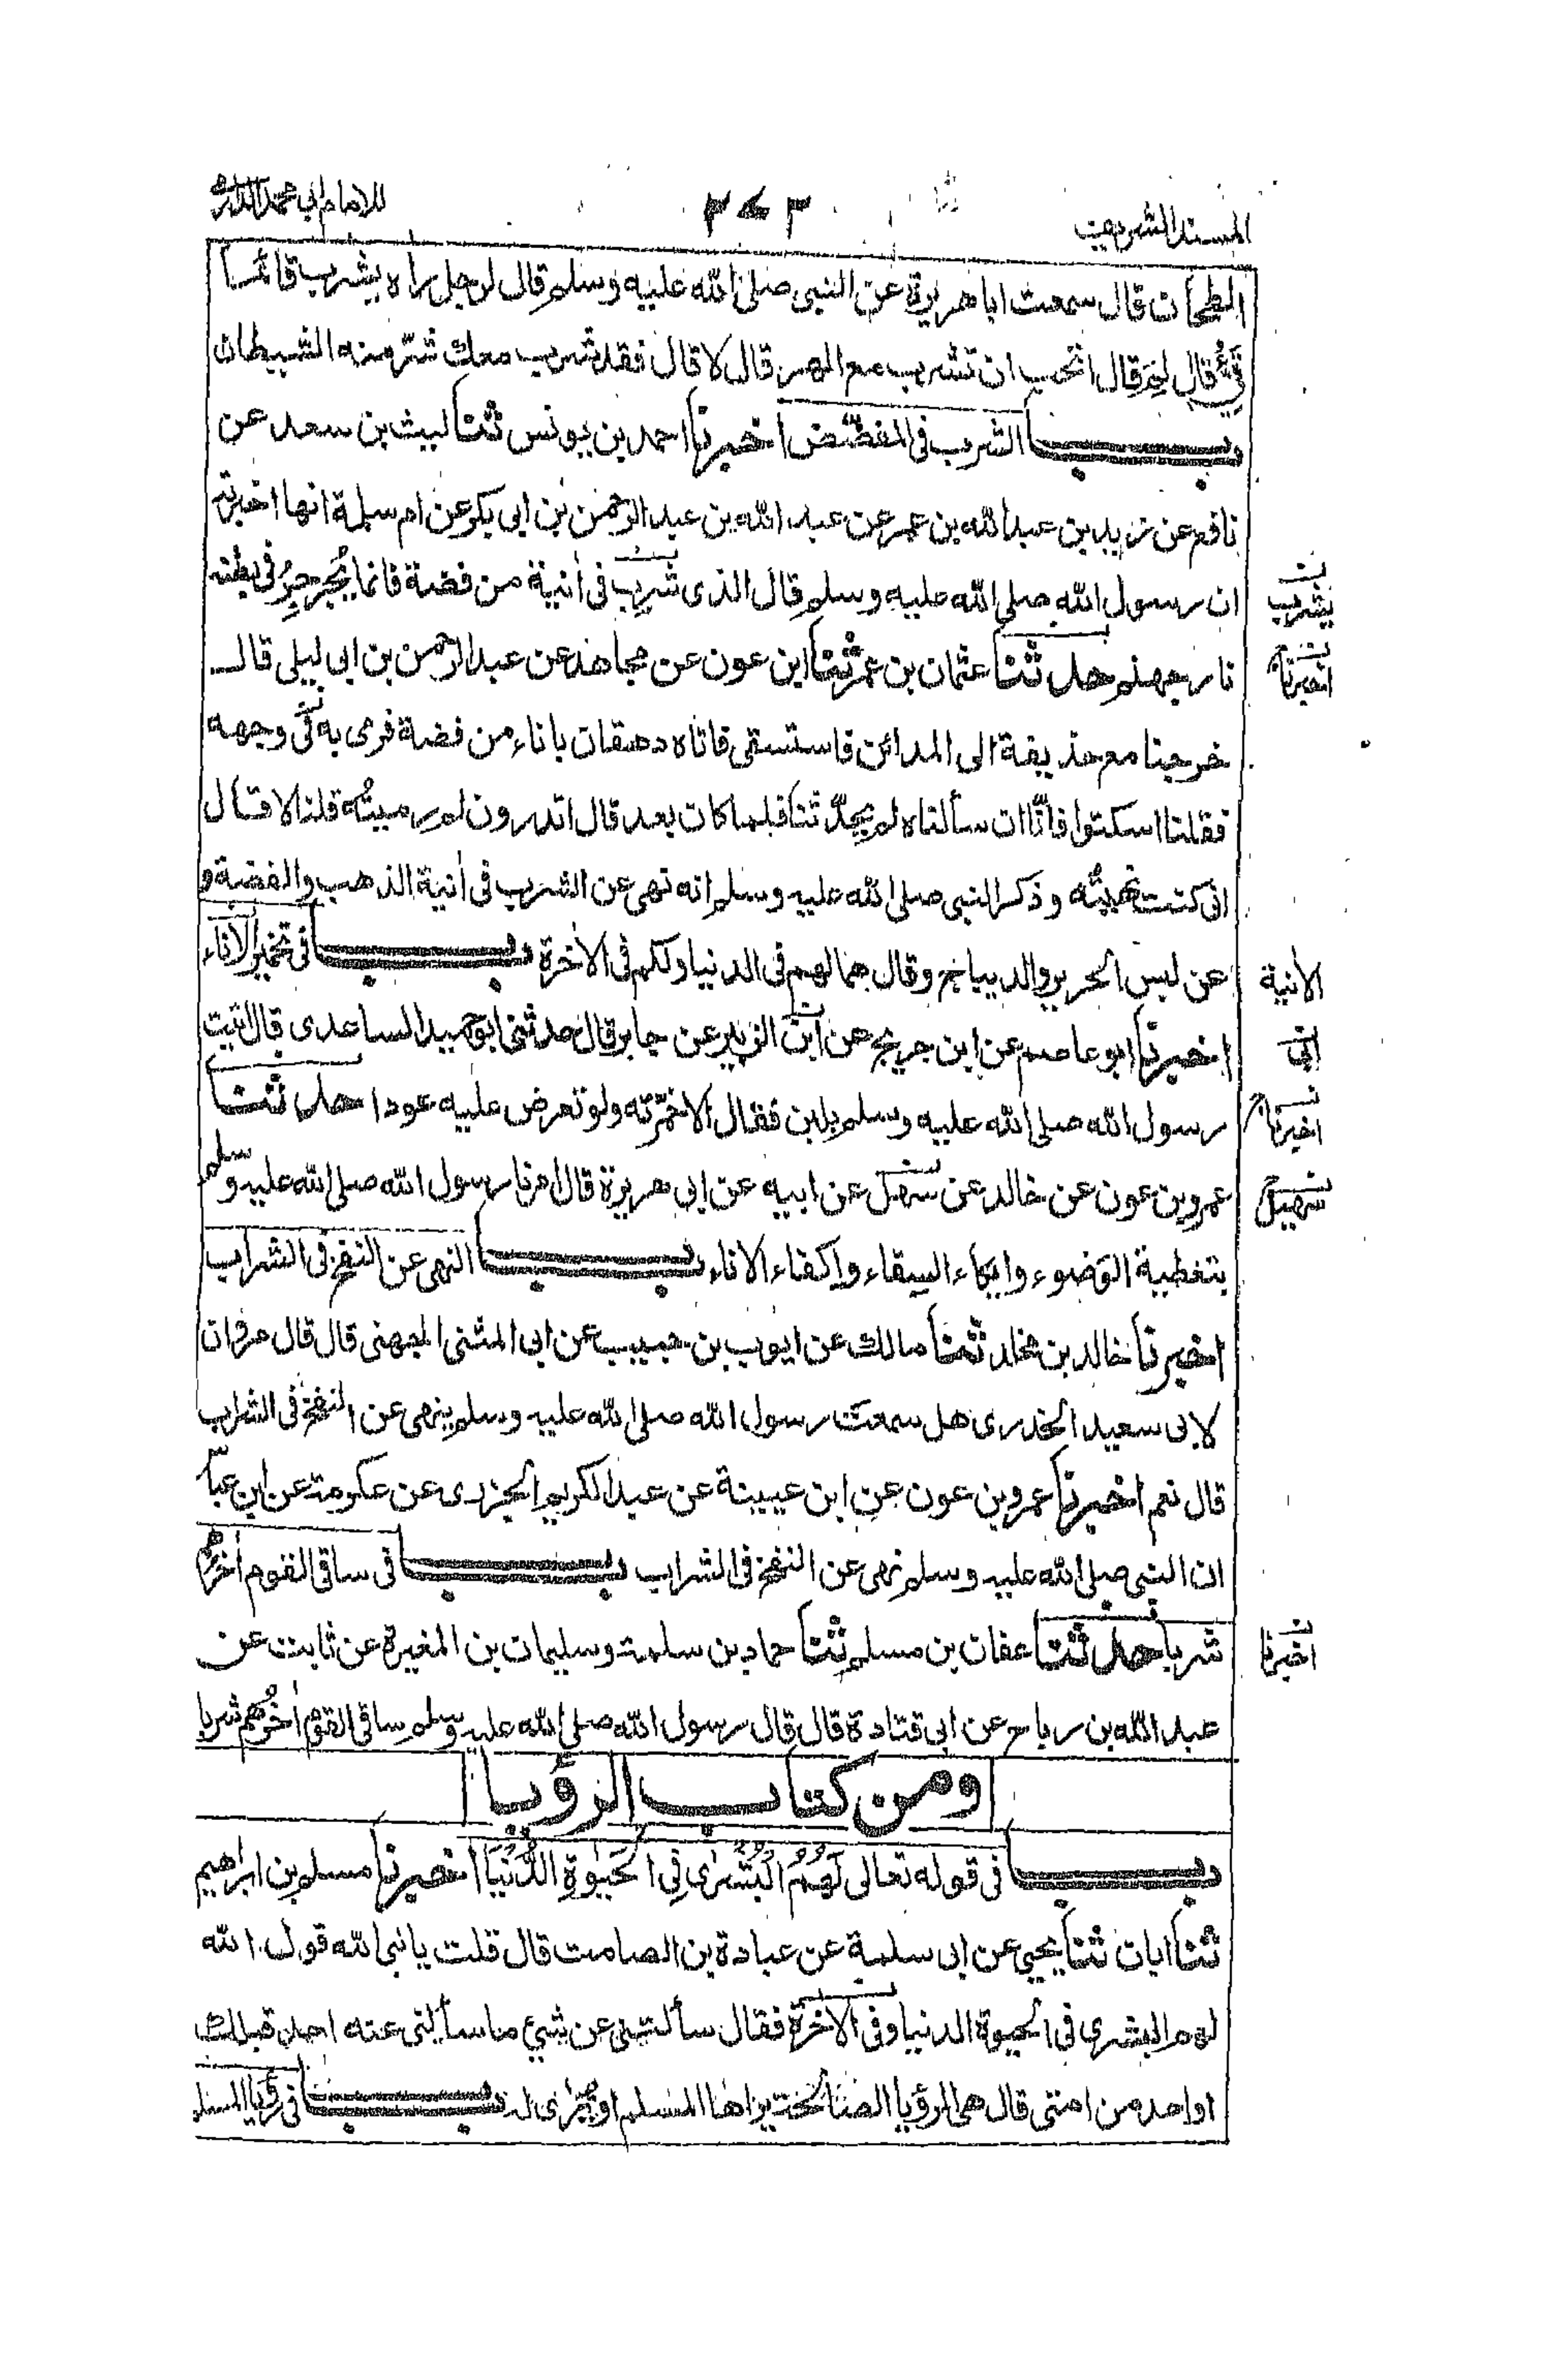 المسند الشريف
٢٧٣
للامام ابي محمد الدارمي
الطحان قال سمعت ابا هريرة عن النبي صلى الله عليه وسلم قال لرجل راه يشرب قائما
قئ قال لم قال اتحب ان تشرب مع الهر قال لا قال فقد شرب معك شر منه الشيطان
باب الشرب في المفضض اخبرنا احمد بن يونس ثنا ليث بن سعد عن
نافع عن زيد بن عبد الله بن عمر عن عبد الله بن عبد الرحمن بن ابي بكر عن ام سلمة انها اخبرته
ان رسول الله صلى الله عليه وسلم قال الذى شرب في اٰنية من فضة فانما يُجرجِرُ في بطنه
يشرب
نار جهنم حدثنا عثمان بن عمر ثنا ابن عون عن مجاهد عن عبد الرحمن بن ابى ليلى قال
اخبرنا
خرجنا مع حذيفة الى المدائن فاستسقى فاتاه دهقان باناء من فضة فرمى به في وجهه
فقلنا اسكتوا فانّا ان سألناه لم يحدّثنا فلما كان بعد قال اتدرون لم رميتُه قلنا لا قال
انى كنت نهيتُه وذكر النبى صلى الله عليه وسلم انه نهى عن الشرب فى اٰنية الذهب والفضة و
عن لبس الحرير والديباج وقال هما لهم فى الدنيا ولكم فى الاٰخرة باب فى تخمير الاناء
الاٰنية
اخبرنا ابو عاصم عن ابن جريج عن ابن الزبير عن جابر قال حدثنى ابو حميد الساعدى قال اتيت
ابى
رسول الله صلى الله عليه وسلم بلبن فقال الا خمّرته ولو تعرض عليه عودا حدثنا
اخبرنا
عمرو بن عون عن خالد عن سهل عن ابيه عن ابى هريرة قال امرنا رسول الله صلى الله عليه وسلم
سهيل
بتغطية الوضوء وايكاء السقاء واكفاء الاناء باب النهى عن النفخ فى الشراب
اخبرنا خالد بن مخلد ثنا مالك عن ايوب بن حبيب عن ابى المثنى الجهنى قال قال مروان
لابى سعيد الخدرى هل سمعت رسول الله صلى الله عليه وسلم ينهى عن النفخ فى الشراب
قال نعم اخبرنا عمرو بن عون عن ابن عيينة عن عبد الكريم الجزرى عن عكرمة عن ابن عباس
ان النبى صلى الله عليه وسلم نهى عن النفخ فى الشراب باب فى ساقى القوم اٰخرهم
شربا حدثنا عفان بن مسلم ثنا حماد بن سلمة وسليمان بن المغيرة عن ثابت عن
اخبرنا
عبد الله بن رباح عن ابى قتادة قال قال رسول الله صلى الله عليه وسلم ساقى القوم اٰخرُهم شربا
ومن كتاب الرؤيا
باب فى قوله تعالى لَهُمُ الْبُشْرٰى فِى الْحَيٰوةِ الدُّنْيَا اخبرنا مسلم بن ابراهيم
ثنا ابان ثنا يحيى عن ابى سلمة عن عبادة بن الصامت قال قلت يا نبى الله قول الله
لهم البشرى فى الحيوة الدنيا وفى الاٰخرة فقال سألتنى عن شئ ما سألنى عنه احد قبلك
او احد من امتى قال هى الرؤيا الصالحة يراها المسلم او تُرٰى له باب فى رؤيا المسلم